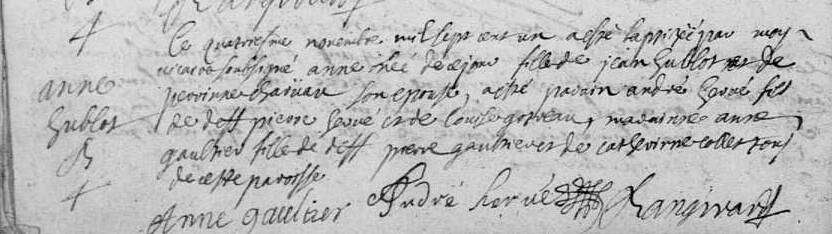 Le quatriesme novembre mil sept cent un a esté baptizée par moy
vicaire soubsigné anne née de ce jour fille de jean hublot et de
anne
perrinne son epouse, a esté parain andré hervé fils
hublot
de deff pierre hervé et de louise madainne anne
gaultier fille de deff pierre gaultier et de catherinne collet tous
de ceste paroisse
Anne gaultier André hervé Rangivard